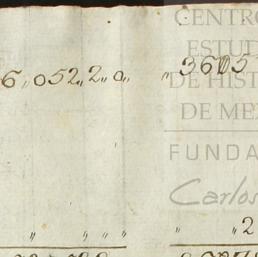 CENTRO
ESTUD
6,052,,2,,0,,
,,3605
DE HIST
DE MEX
FUNDA
Carlos
,, ,, ,, ,,
,, ,,2